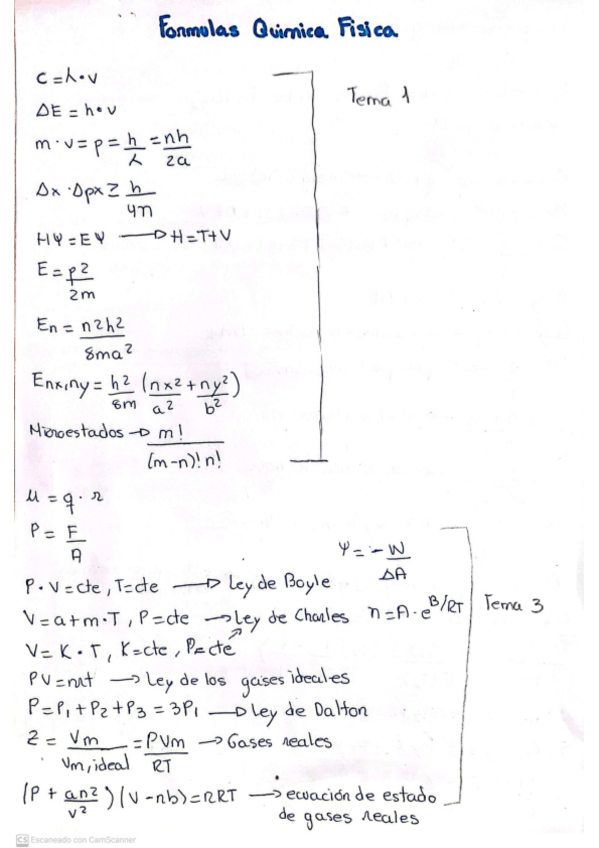 Formulas Quimica Fisica
C = λ · ν
Tema 1
ΔE = h · ν
m · v = p = h/λ = nh/2a
Δx · Δpx ≥ h/4π
Hψ = Eψ → H = T + V
E = p²/2m
En = n²h²/8ma²
Enx,ny = h²/8m (nx²/a² + ny²/b²)
Microestados → m!/(m-n)!n!
μ = q · r
P = F/A
γ = - W/ΔA
P · V = cte, T = cte → Ley de Boyle
V = a + m · T, P = cte → Ley de Charles η = A · e^B/RT
Tema 3
V = K · T, K = cte, P = cte
PV = nrt → Ley de los gases ideales
P = P₁ + P₂ + P₃ = 3P₁ → Ley de Dalton
Z = Vm/Vm,ideal = PVm/RT → Gases reales
(P + an²/v²)(V - nb) = nRT → ecuación de estado
de gases reales
CS Escaneado con CamScanner